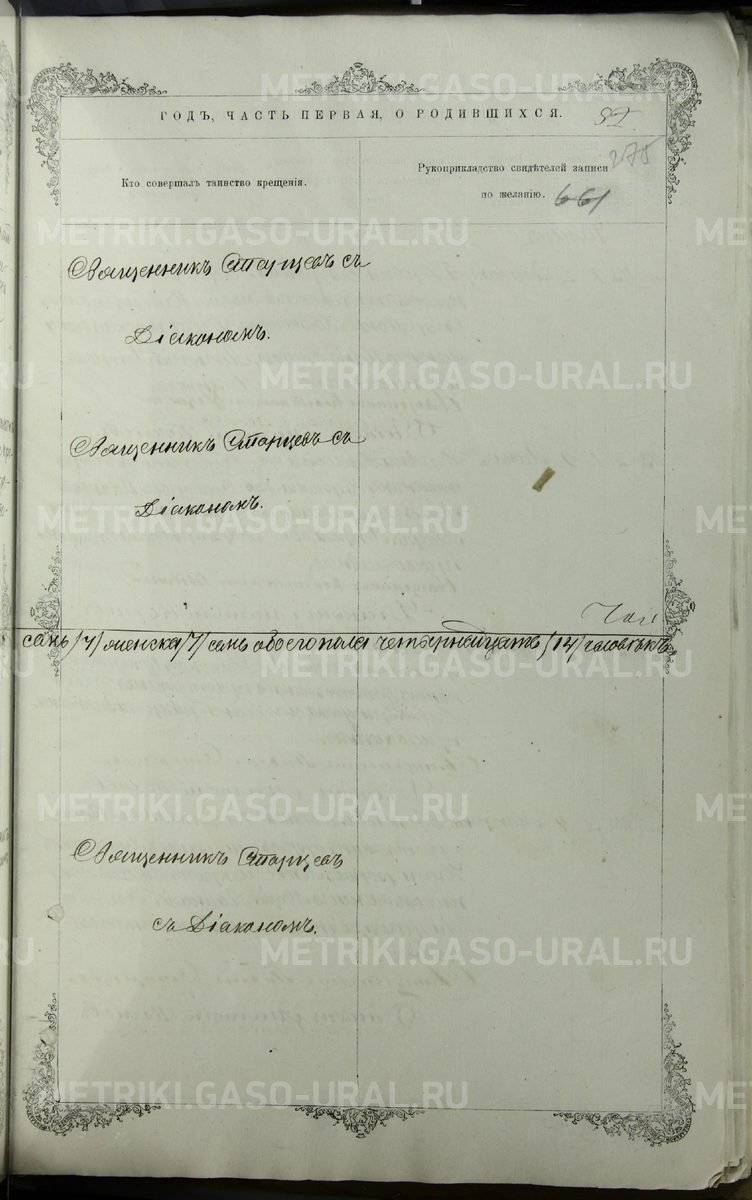 METRIKI.GASO-URAL.RU
ГОДЪ, ЧАСТЬ ПЕРВАЯ, О РОДИВШИХСЯ.
275
Кто совершалъ таинство крещенія.
Рукоприкладство свидѣтелей записи
по желанію. 661
Священникъ Старцевъ съ
Діакономъ.
Священникъ Старцевъ съ
Діакономъ.
семь /7/ женска /7/ семь обоего пола четырнадцать /14/ человѣкъ
Священникъ Старцевъ
съ Діакономъ.